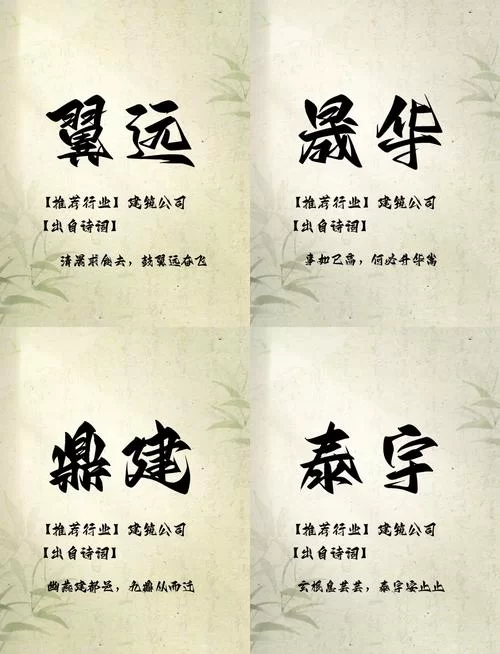 翼远
【推荐行业】建筑公司
【出自诗词】
清晨求食去，鼓翼远奋飞
晟华
【推荐行业】建筑公司
【出自诗词】
事如已高，何必升华嵩
鼎建
【推荐行业】建筑公司
【出自诗词】
幽燕建都邑，九鼎从而迁
泰宇
【推荐行业】建筑公司
【出自诗词】
玄根息芸芸，泰宇安止止